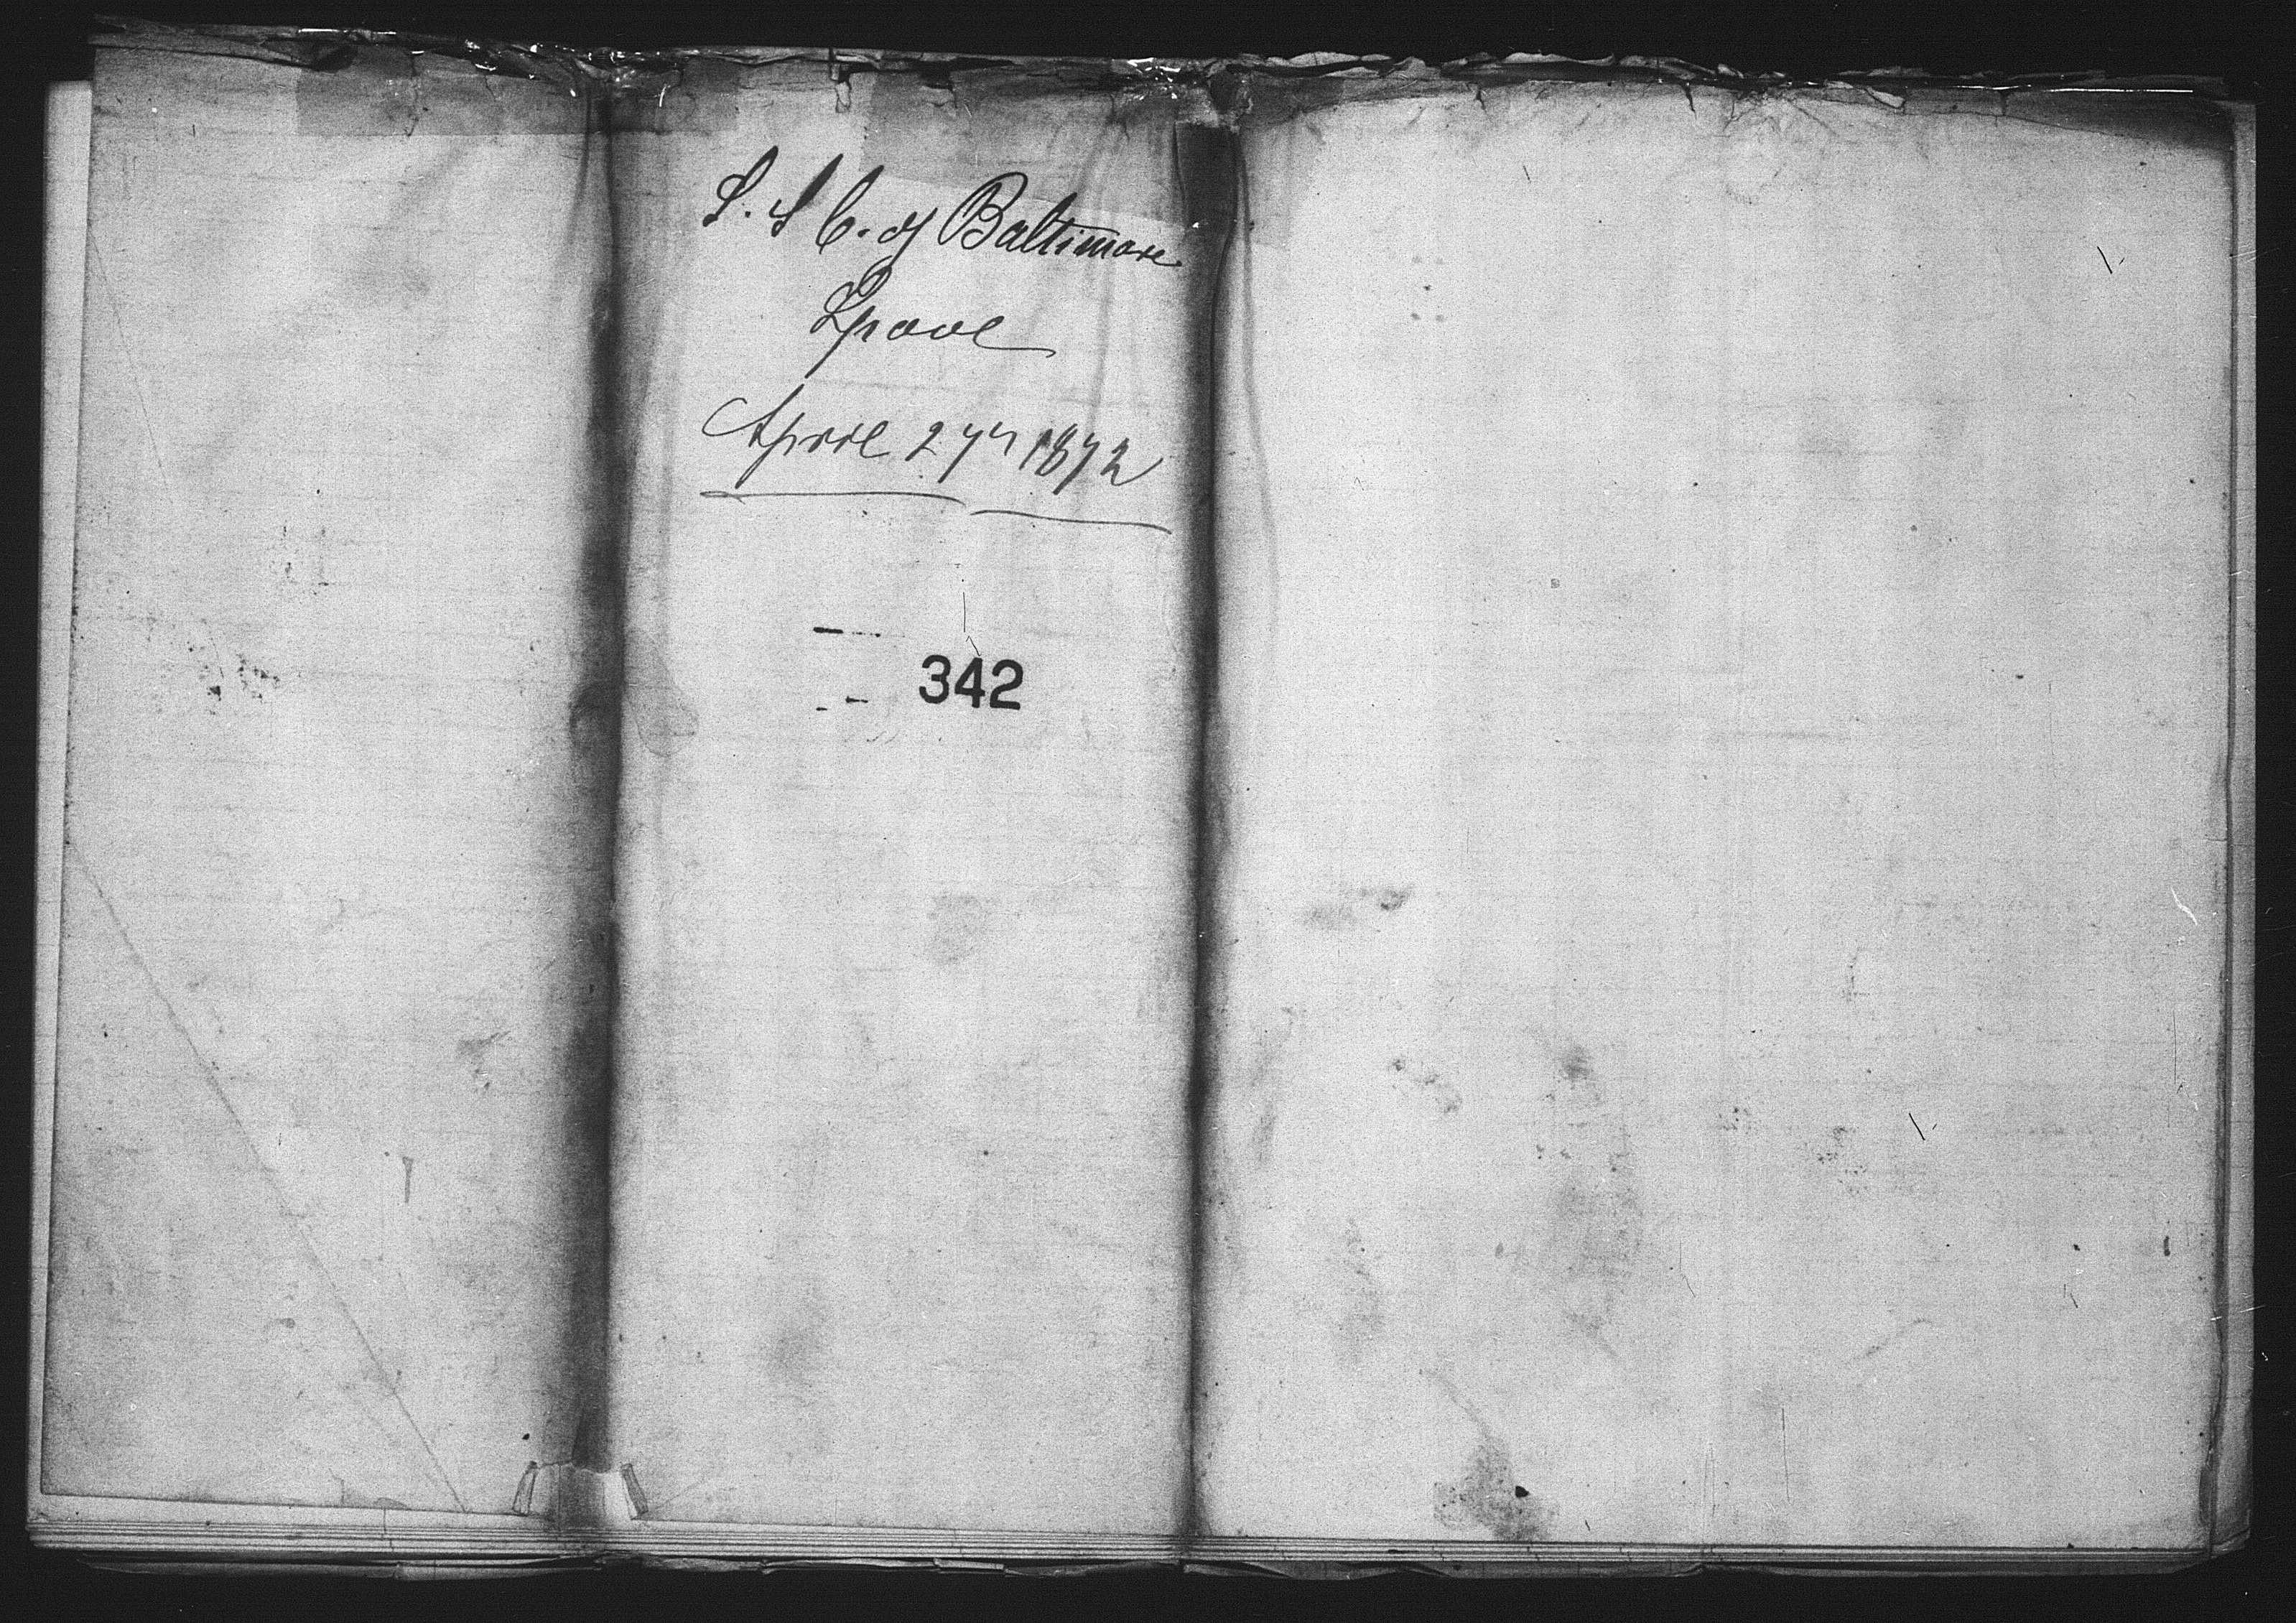 S. S C. of Baltimore
Lpool
April 27th 1872
342